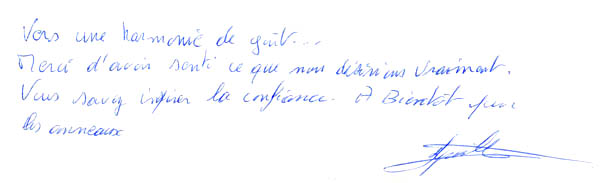 Vers une harmonie de goût...
Merci d'avoir senti ce que nous désirions vraiment.
Vous savez inspirer la confiance. A Bientôt pour
les anneaux